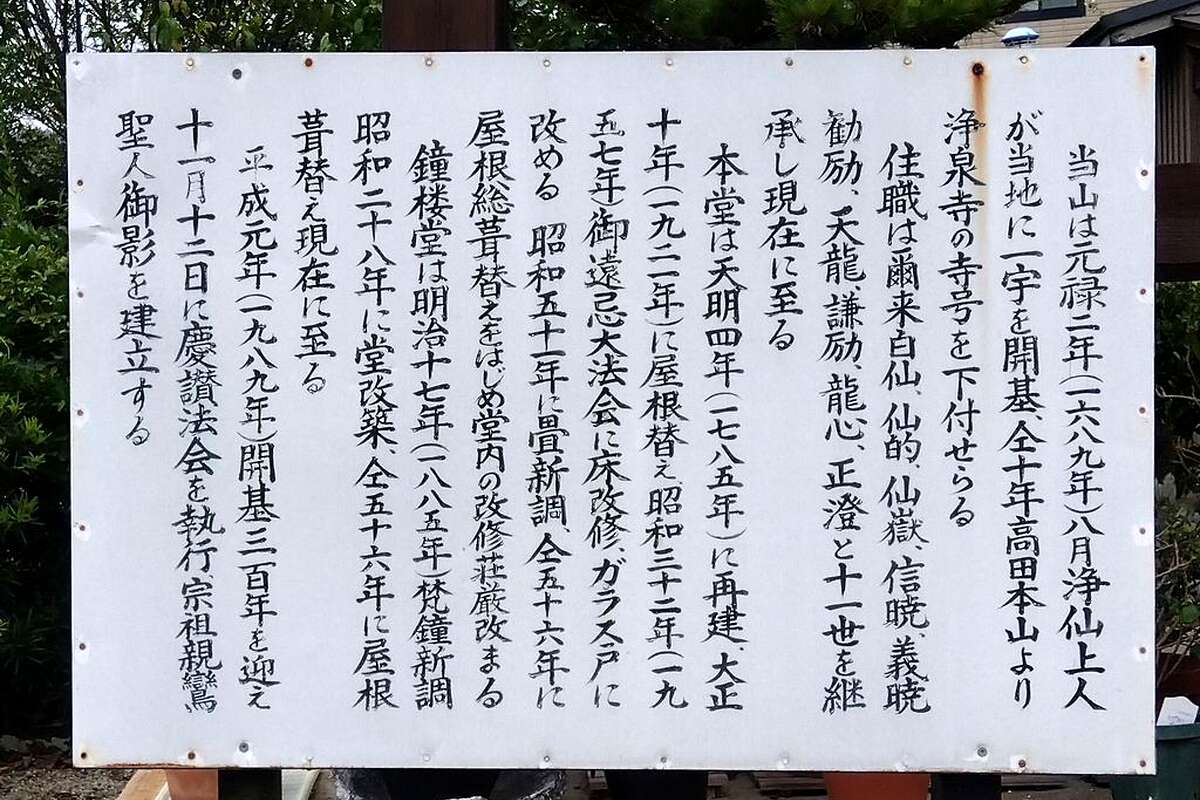 当山は元禄二年(一六八九年)八月浄仙上人
が当地に一宇を開基、仝十年高田本山より
浄泉寺の寺号を下付せらる
住職は爾来白仙、仙的、仙嶽、信暁、義暁
勧励、天龍、謙励、龍心、正澄と十一世を継
承し現在に至る
本堂は天明四年(一七八五年)に再建、大正
十年(一九二一年)に屋根替え、昭和三十二年(一九
五七年)御遠忌大法会に床改修、ガラス戸に
改める 昭和五十一年に畳新調、仝五十六年に
屋根総葺替えをはじめ堂内の改修荘厳改まる
鐘楼堂は明治十七年(一八八五年)梵鐘新調
昭和二十八年に堂改築、仝五十六年に屋根
葺替え現在に至る
平成元年(一九八九年)開基三百年を迎え
十一月十二日に慶讃法会を執行、宗祖親鸞
聖人御影を建立する